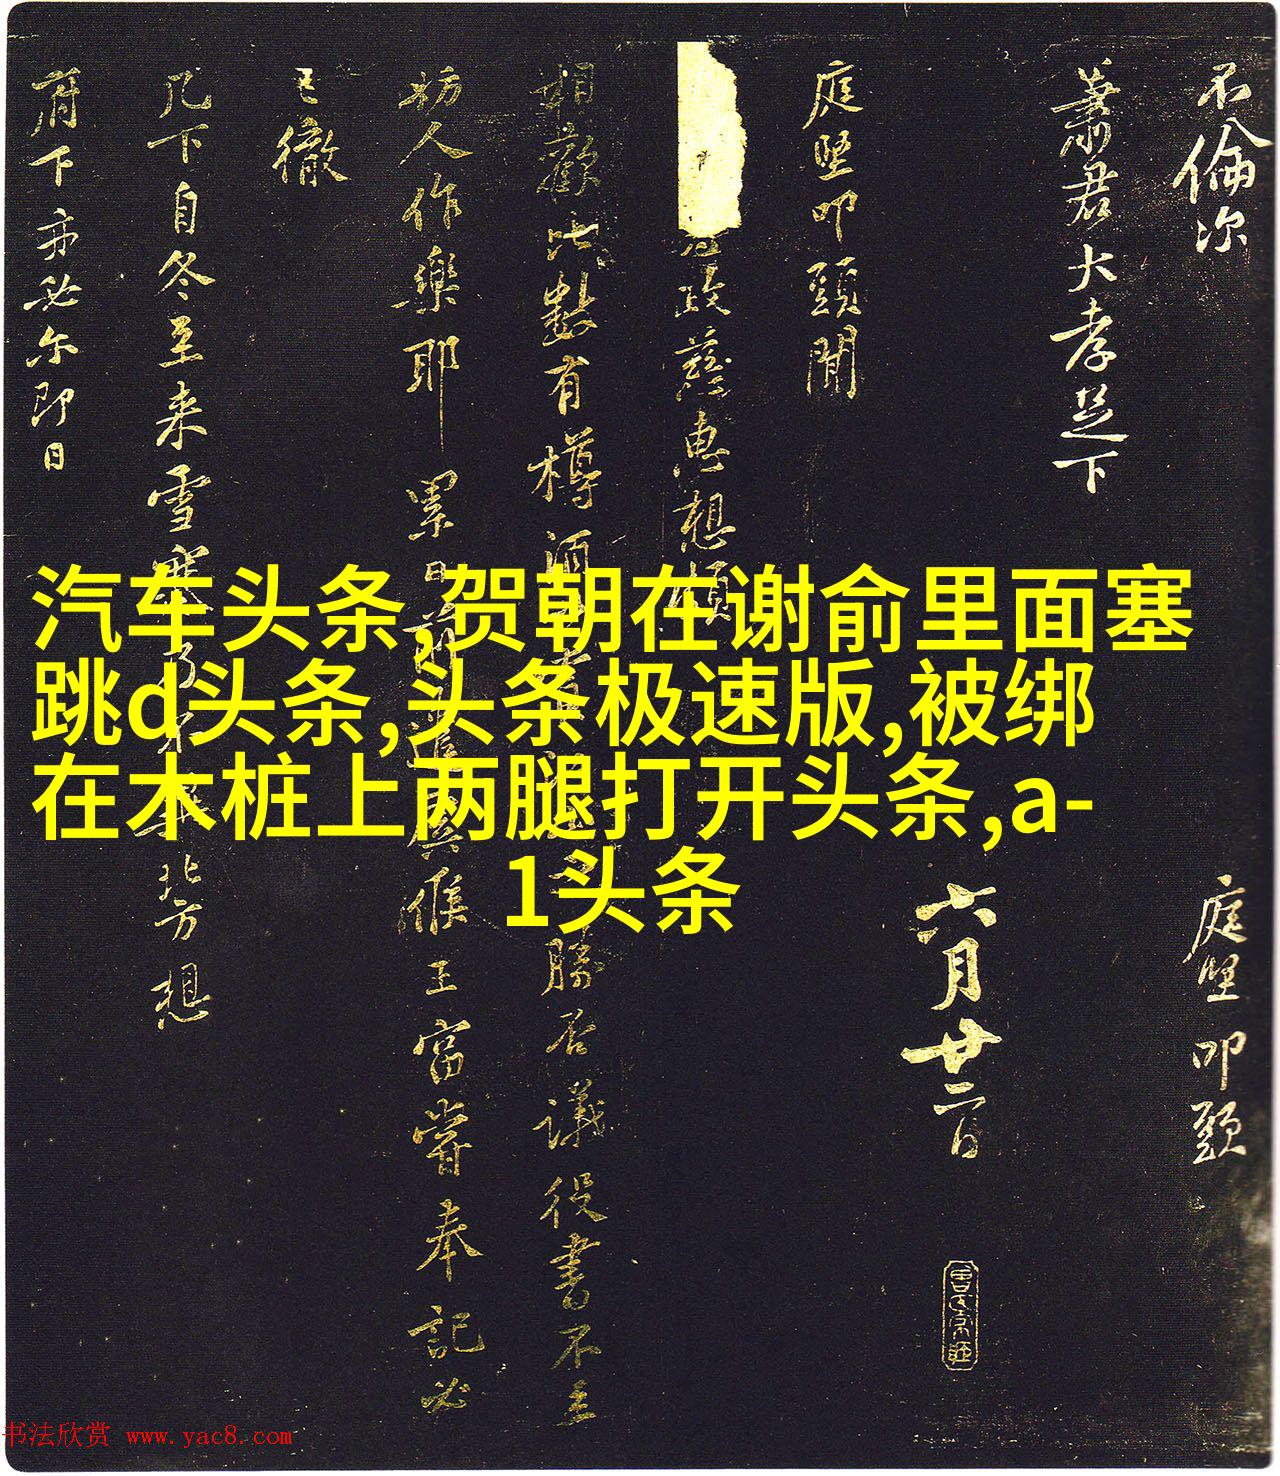 不倫次
庭堅叩頭
蕭君大孝足下
六月廿二日
庭堅叩頭聞
政慈惠想
相歡此數有樽酒
勝否議役書不立
妨人作樂耶累日前
侯王富嘗奉記必
已徹
几下自冬至来雪寒
北方想
府下亦必尔即日
汽车头条,贺朝在谢俞里面塞
跳d头条,头条极速版,被绑
在木桩上两腿打开头条,a-
1头条
书法欣赏 www.yac8.com